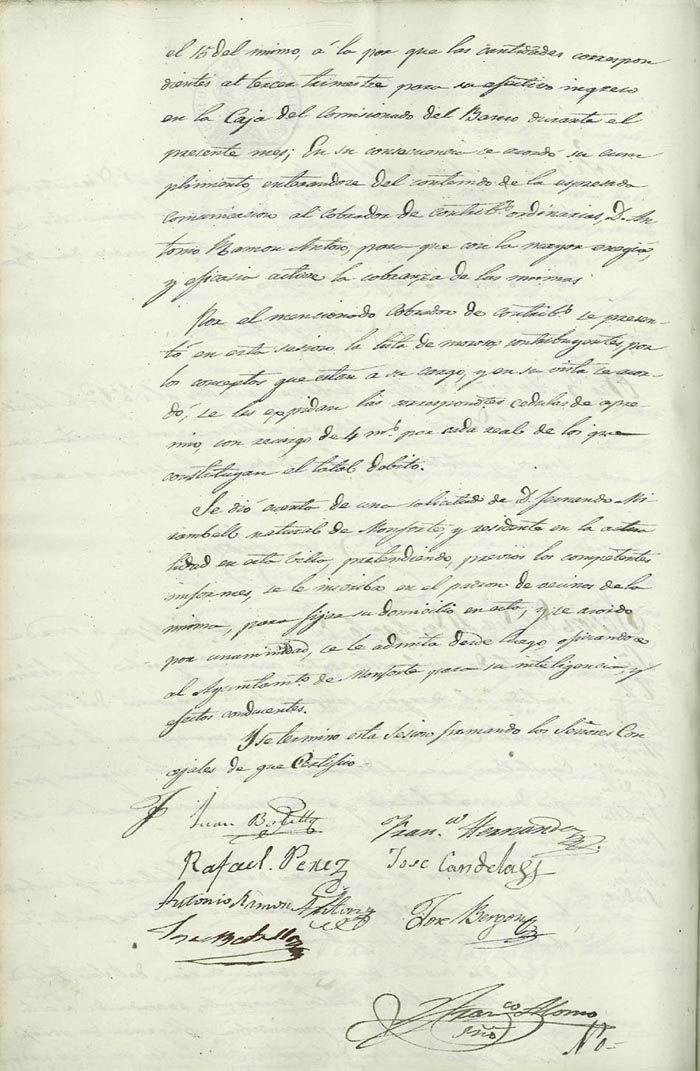 el 15 del mimo, á la por que las cantidades correspon
dientes al tercer trimestre para su efectivo ingreso
en la Caja del Comisionado del Banco durante el
presente mes; En su consecuencia se acordó su cum
plimiento, enterandose del contenido de la espresada
comunicacion al cobrador de contrib.s ordinarias, D. An
tonio Ramon Anton, para que con la mayor
y eficacia active la cobranza de las mismas
Por el mencionado Cobrador de contrib.s se presen-
tó en esta sesion la lista de morosos contribuyentes, por
los conceptos que estan a su cargo, y en su vista se acor-
dó, se les expidan las correspond.tes cedulas de apre-
mio, con recargo de 4 m.s por cada real de los que
constituyan el total debito.
Se dió cuenta de una solicitud de D. Fernando Mi
rambell natural de Monforte, y residente en la actua
lidad en esta villa, pretendiendo, previos los competentes
informes, se le inscriba en el padron de vecinos de la
misma, para fijar su domicilio en esta, y se acordó
por unanimidad, se le admita desde luego, oficiandose
al Ayuntam.to de Monforte para su inteligencia, y
efectos conducentes.
Y se terminó esta Sesion firmando los Señores Con
cejales de que Certifico -
Juan Botella Fran.co Hernandez
Rafael Perez Jose Candela
Antonio Ramon Anton Jose Bergon
Jose Botella
Fran.co Alonso
Srio